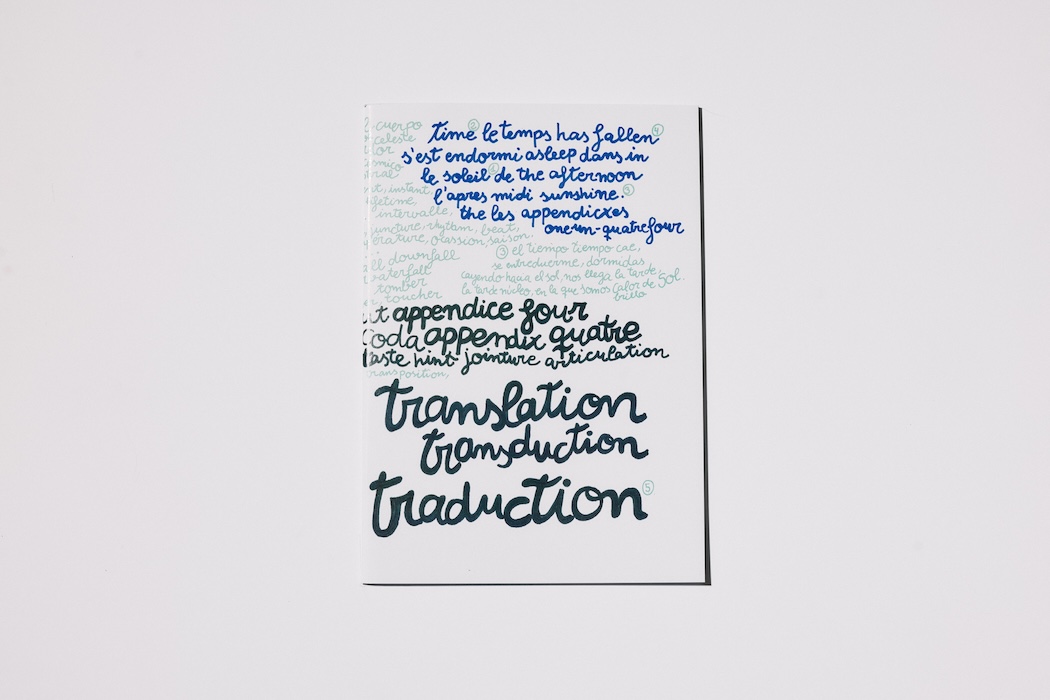 cuerpo
celeste
time le temps has fallen
②
④
s'est endormi asleep dans in
le soleil de the afternoon
l'apres midi sunshine.
③
instant,
intervalle,
the les appendicxes
one un-quatre four
rhythm, beat,
saison.
③ el tiempo tiempo cae,
downfall
se entreduerme, dormidas
waterfall
cayendo hacia el sol, nos llega la tarde
tomber
la tarde nicko, en la que somos calor de sol.
toucher
brillo
appendice four
coda appendix quatre
taste hint jointure articulation
transposition,
translation
transduction
traduction
⑤